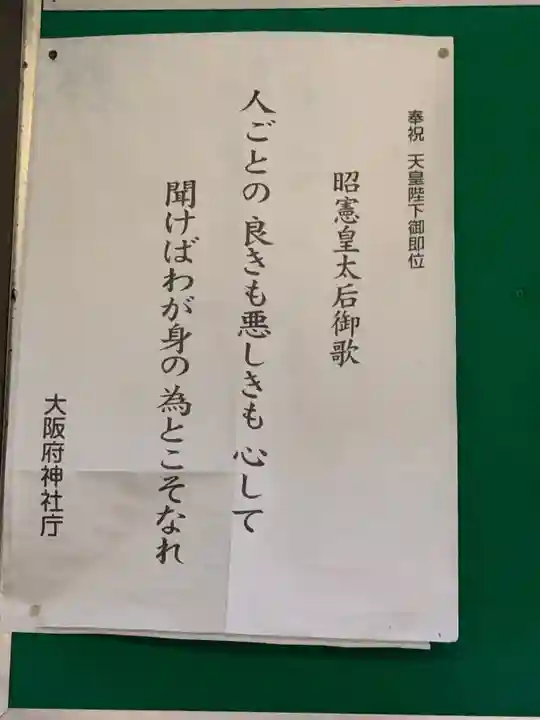 奉祝 天皇陛下御即位
昭憲皇太后御歌
人ごとの 良きも悪しきも 心して
聞けばわが身の 為とこそなれ
大阪府神社庁